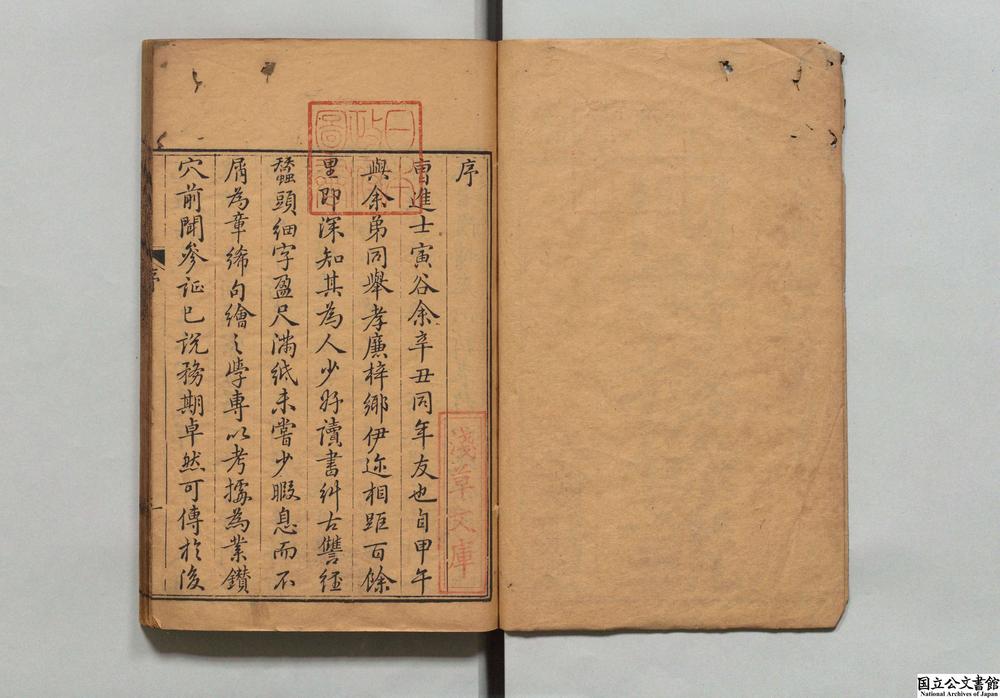 序
曺進士寅谷余辛丑同年友也自甲午
與余弟同舉孝廉梓鄉伊迩相距百餘
里即深知其為人少好讀書糾古讐經
蠶頭細字盈尺滿紙未嘗少暇息而不
屑為章絺句繪之學專以考據為業鑚
穴前聞參証已說務期卓然可傳於後
序
一
日本政府圖書
淺草文庫
国立公文書館
National Archives of Japan